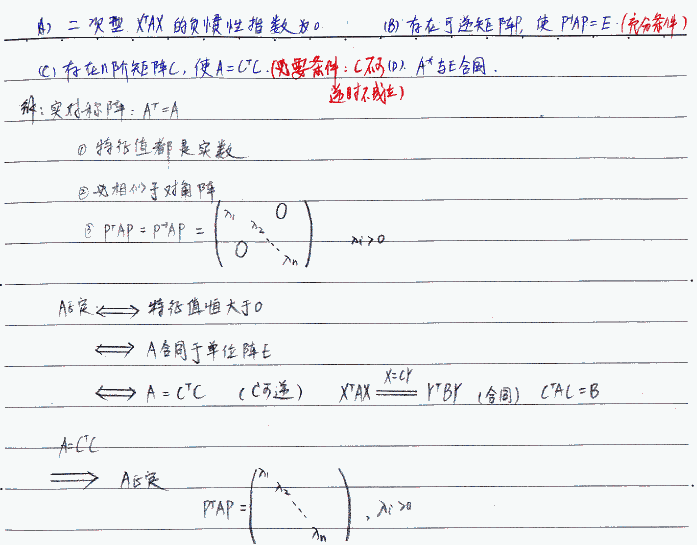 A) 二次型 XᵀAX 的负惯性指数为0. (B) 存在可逆矩阵P, 使 P⁻¹AP=E.(充分条件)
(C) 存在n阶矩阵C, 使A=CᵀC.(必要条件: C不可 (D). A*与E合同.
逆时不成立)
解: 实对称阵: Aᵀ=A
① 特征值都是实数
② 必相似于对角阵
③ PᵀAP = P⁻¹AP = (λ₁ λ₂ ⋱ λₙ 0 0) λi>0
A正定 ⟺ 特征值恒大于0
⟺ A合同于单位阵E
⟺ A = CᵀC (C可逆) XᵀAX ══ X=CY ══ YᵀBY (合同) CᵀAC=B
A=CᵀC
⟹ A正定
PᵀAP = (λ₁ λ₂ ⋱ λₙ), λi>0